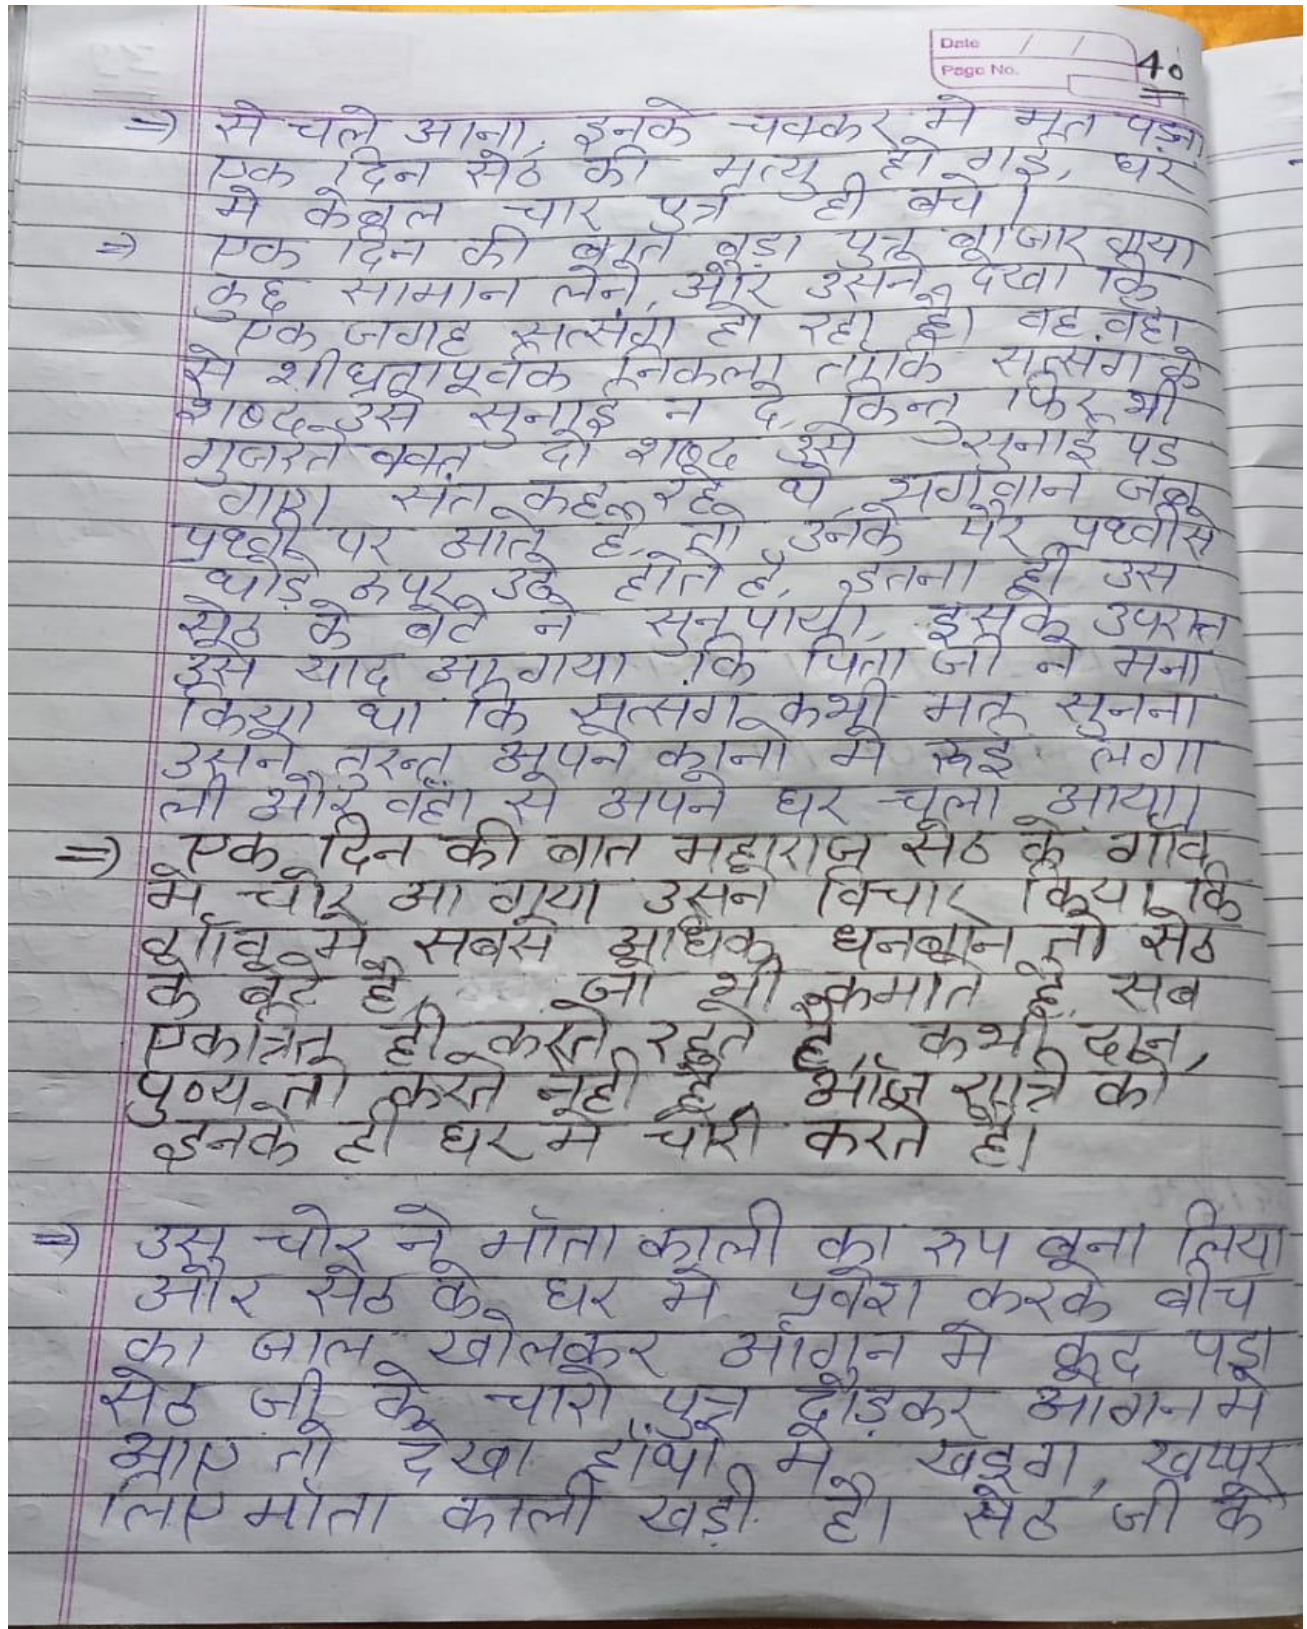 Date / /
Page No. 40
=> से चले आना, इनके चक्कर मे मत पड़ना
एक दिन सेठ की मृत्यु हो गई, घर
मे केबल चार पुत्र ही बचे।
=> एक दिन की बात बड़ा पुत्र बाजार गया
कुछ सामान लेने, और उसने देखा कि
एक जगह सत्संग हो रहा है। वह वहा
से शीघ्रतापूर्वक निकला ताकि सत्संग के
शब्द उसे सुनाई न दे, किन्तु फिर भी
गुजरते वक्त दो शब्द उसे सुनाई पड
गए। संत कह रहे थे भगवान जब
प्रथ्वी पर आते है, तो उनके पैर प्रथ्वी से
थोड़े ऊपर उठे होते है, इतना ही उस
सेठ के बेटे ने सुन पाया, इसके उपरान्त
उसे याद आ गया कि पिता जी ने मना
किया था कि सत्संग कभी मत सुनना
उसने तुरन्त अपने कानो मे रूई लगा
ली और वहाँ से अपने घर चला आया।
=> एक दिन की बात महाराज सेठ के गाँव
मे चोर आ गया उसने विचार किया कि
गाँव मे सबसे अधिक धनबान तो सेठ
के बेटे है, जो भी कमाते है, सब
एकत्रित ही करते रहते है, कभी दान,
पुण्य तो करते नही है, आज रात्रि को
इनके ही घर मे चोरी करते है।
=> उस चोर ने माँता काली का रुप बना लिया
और सेठ के घर मे प्रवेश करके बीच
का जाल खोलकर आँगन मे कूद पड़ा
सेठ जी के चारो पुत्र दौड़कर आंगन मे
आए तो देखा हाँथो मे खड़ग, खप्पर
लिए माँता काली खड़ी है। सेठ जी के